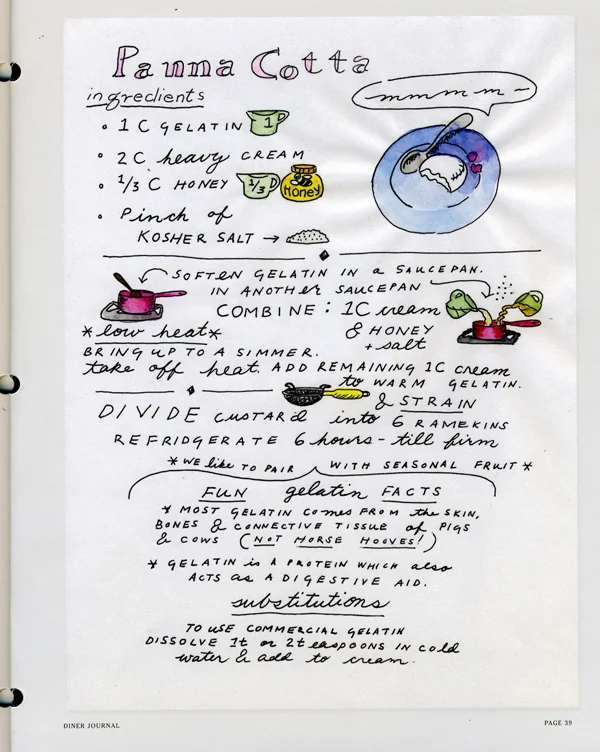 Panna Cotta
ingredients
• 1 C GELATIN 1
• 2 C heavy CREAM
• 1/3 C HONEY 1/3 Honey
• Pinch of
KOSHER SALT →
mmmm-m-
SOFTEN GELATIN IN a SAUCEPAN.
IN ANOTHER SAUCEPAN
COMBINE: 1C cream
& HONEY
+ salt
*low heat*
BRING UP TO A SIMMER.
take off heat. ADD REMAINING 1C cream
to WARM GELATIN.
& STRAIN
DIVIDE custard into 6 RAMEKINS
REFRIDGERATE 6 hours - till firm
*WE like TO PAIR WITH SEASONAL FRUIT*
FUN gelatin FACTS
* MOST GELATIN COMES FROM the SKIN,
BONES & CONNECTIVE TISSUE of PIGS
& COWS (NOT HORSE HOOVES!)
* GELATIN is A PROTEIN WHICH also
ACTS as A DIGESTIVE AID.
substitutions
TO USE COMMERCIAL GELATIN
DISSOLVE 1t or 2teaspoons in cold
water & add to cream.
DINER JOURNAL
PAGE 39